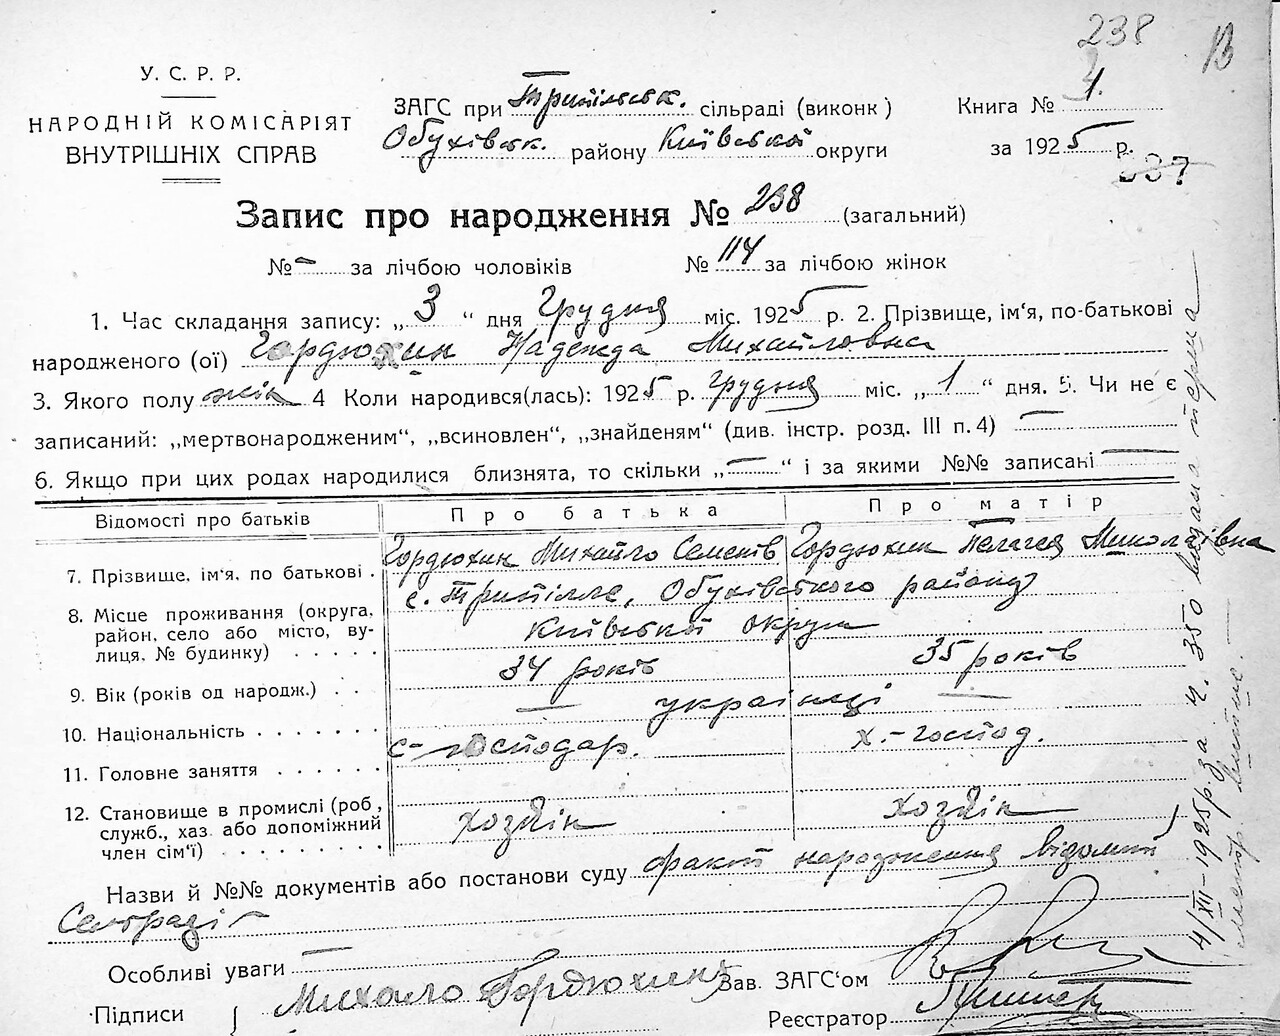 238 В
У. С. Р. Р.
НАРОДНІЙ КОМІСАРІЯТ
ВНУТРІШНІХ СПРАВ
ЗАГС при Трипільськ. сільраді (виконк) Книга № 4.
Обухівськ. району Київської округи за 1925 р.
337
Запис про народження № 238 (загальний)
№ — за лічбою чоловіків № 114 за лічбою жінок
1. Час складання запису: „3“ дня Грудня міс. 1925 р. 2. Прізвище, ім'я, по-батькові
народженого (ої) Гордюхин Надежда Михайловна
3. Якого полу жін 4 Коли народився(лась): 1925 р. Грудня міс. „1“ дня. 5. Чи не є
записаний: „мертвонародженим“, „всиновлен“, „знайденям“ (див. інстр. розд. III п. 4) —
6. Якщо при цих родах народилися близнята, то скільки „—“ і за якими №№ записані —
Відомості про батьків Про батька Про матір
7. Прізвище, ім'я, по батькові . Гордюхин Михайло Семенів Гордюхин Пелагея Миколаївна
8. Місце проживання (округа, район, село або місто, вулиця, № будинку) . . . . . с. Трипілля, Обухівського району
Київської округи
9. Вік (років од народж.) . . 34 років 35 років
10. Національність . . . . . . . — українці —
11. Головне заняття . . . . . . с-господар. х.-господ.
12. Становище в промислі (роб., служб., хаз. або допоміжний член сім'ї) . . . . . . . . . хозяїн хозяїн
Назви й №№ документів або постанови суду факт народження відомий
Сельраді
Особливі уваги —
Підписи Михайло Гордюхин Зав. ЗАГС'ом
Реєстратор
4/XII-1925 р за ч. 350 видана перша